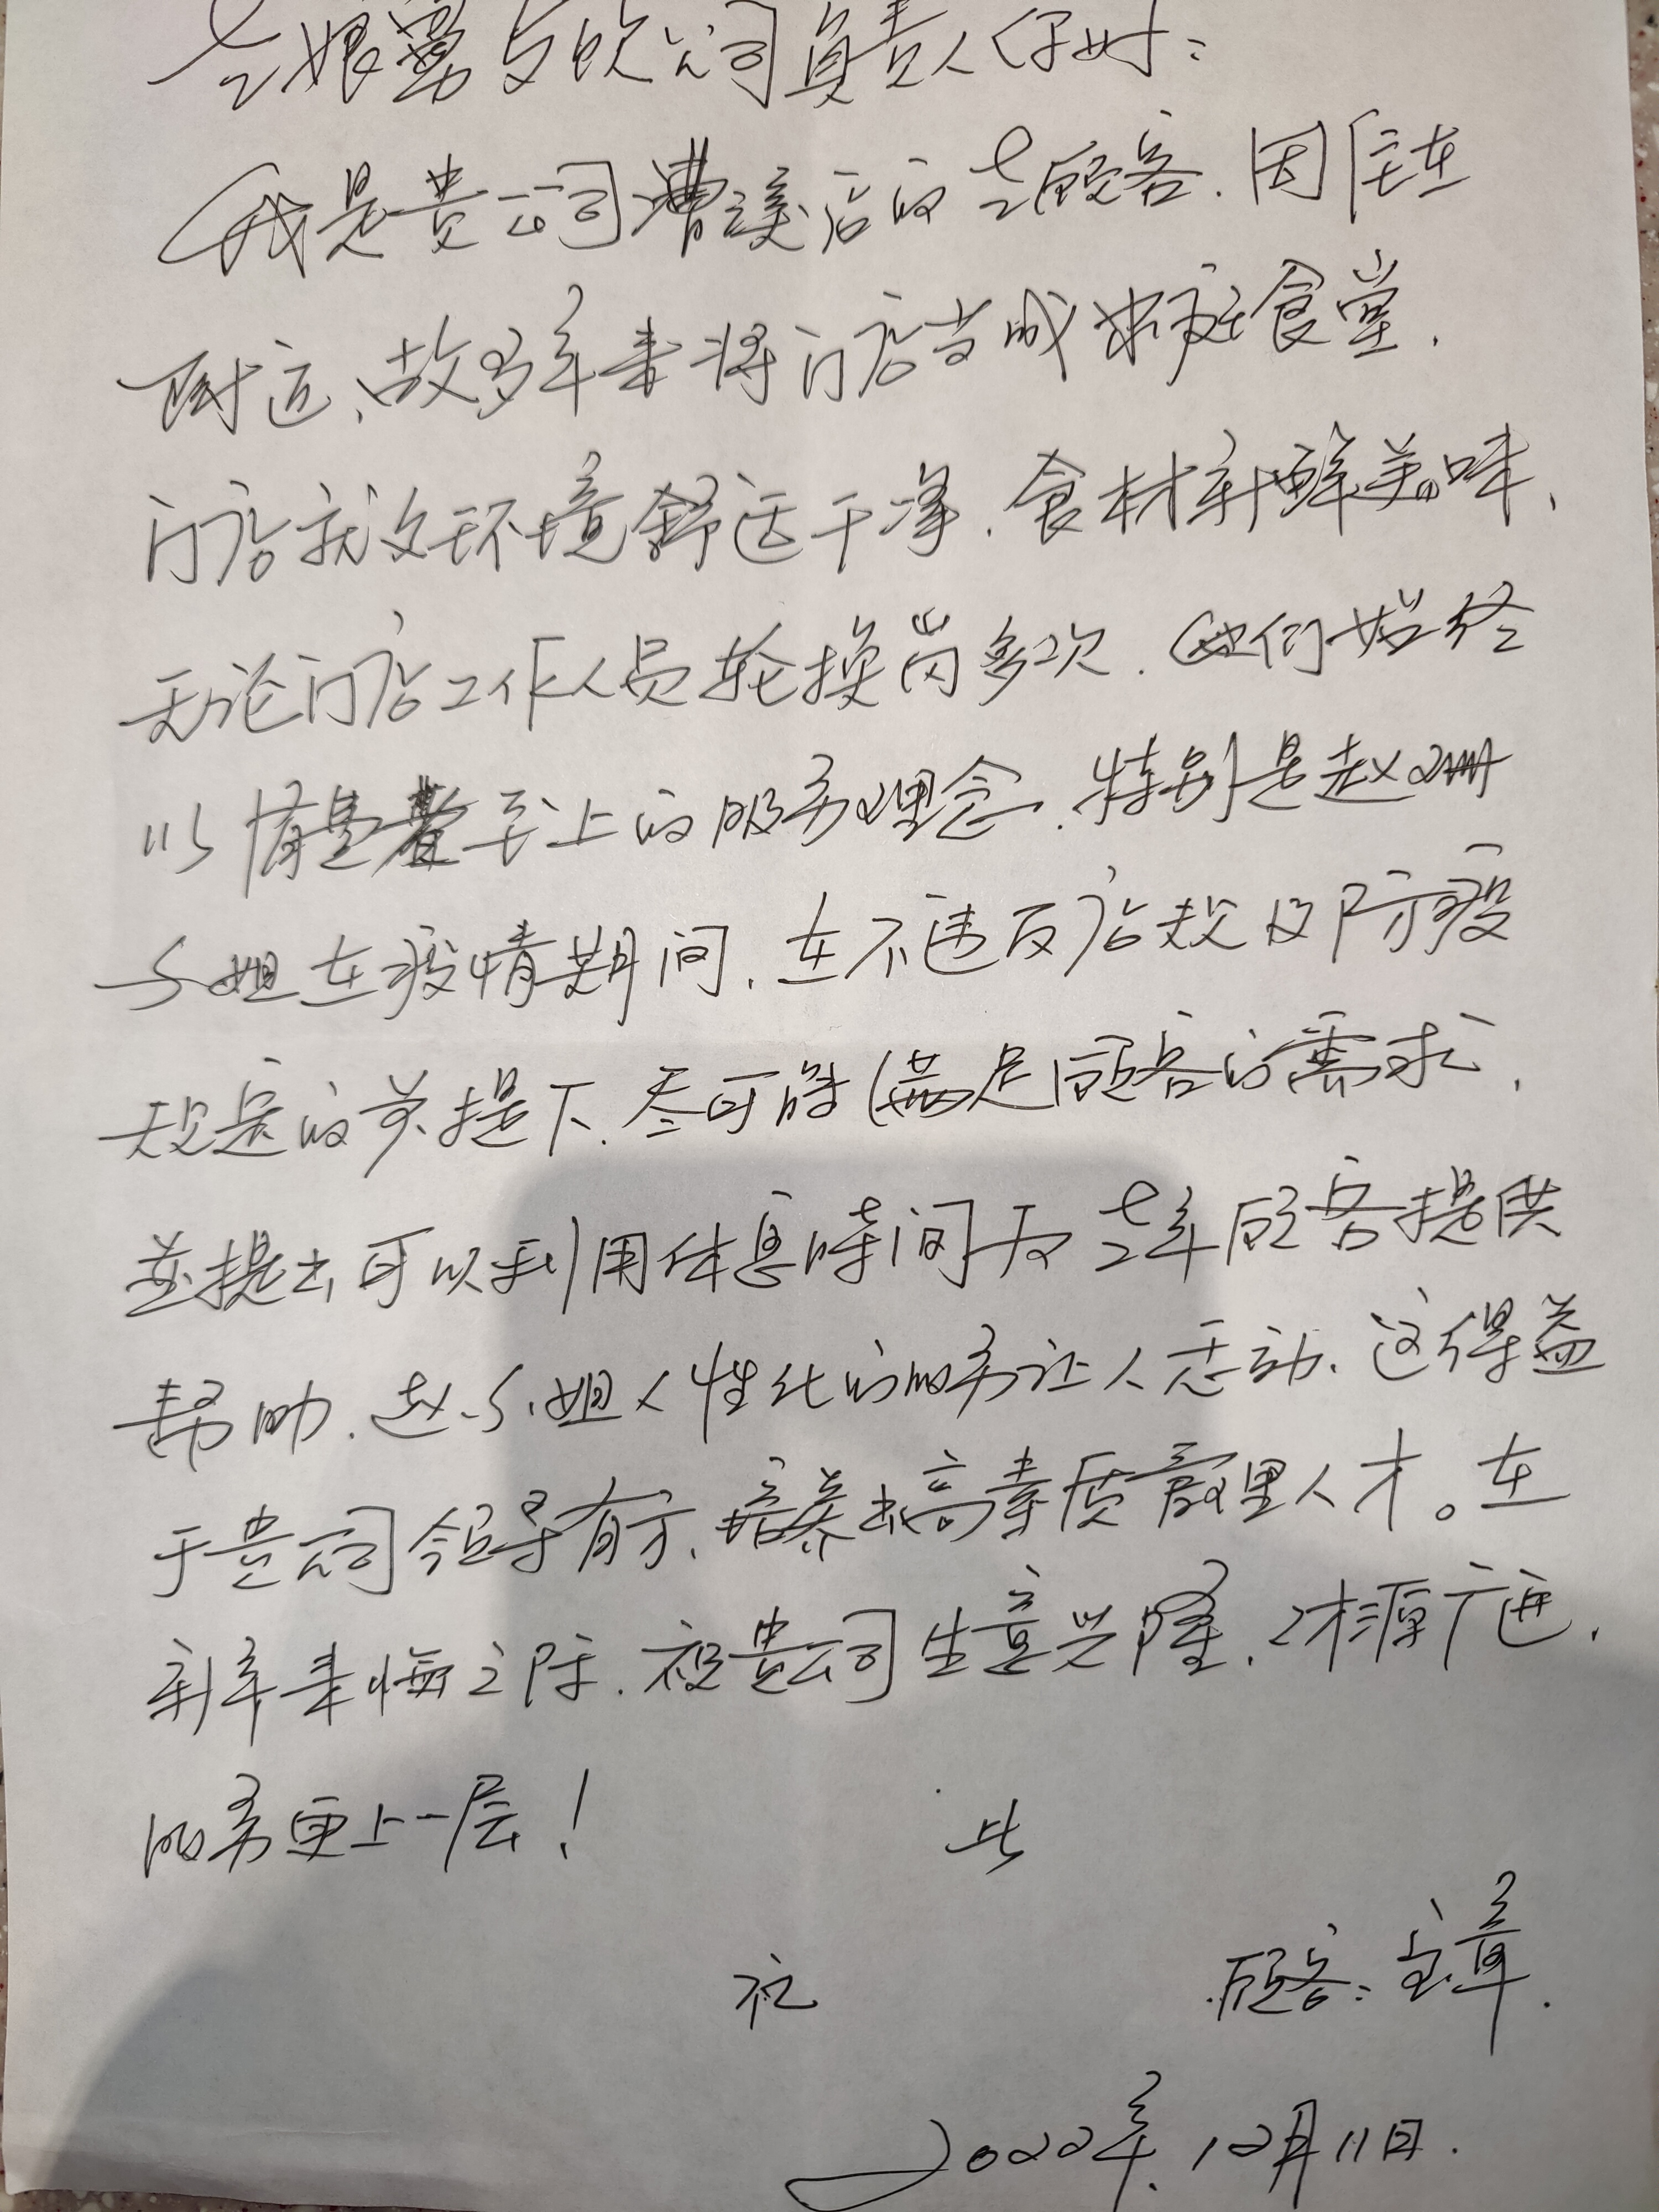 老娘舅餐饮公司负责人你好:
我是贵公司漕溪店的老顾客.因住在
附近、故多年来将门店当成家庭食堂.
门店就餐环境舒适干净.食材新鲜美味、
无论门店工作人员轮换岗多次.她们始终
以情 至上的服务理念.特别是赵珊
小姐在疫情期间.在不违反店规及防疫
规定的前提下.尽可能满足顾客的需求.
並提出可以利用休息時间为老年顾客提供
帮助.赵小姐人性化的服务让人感动.这得益
于贵公司领导有方.培养出高素质管理人才。在
新年来临之际.祝贵公司生意兴隆.财源广进.
服务更上一层!
此
礼
顾客:
2022年.12月11日.